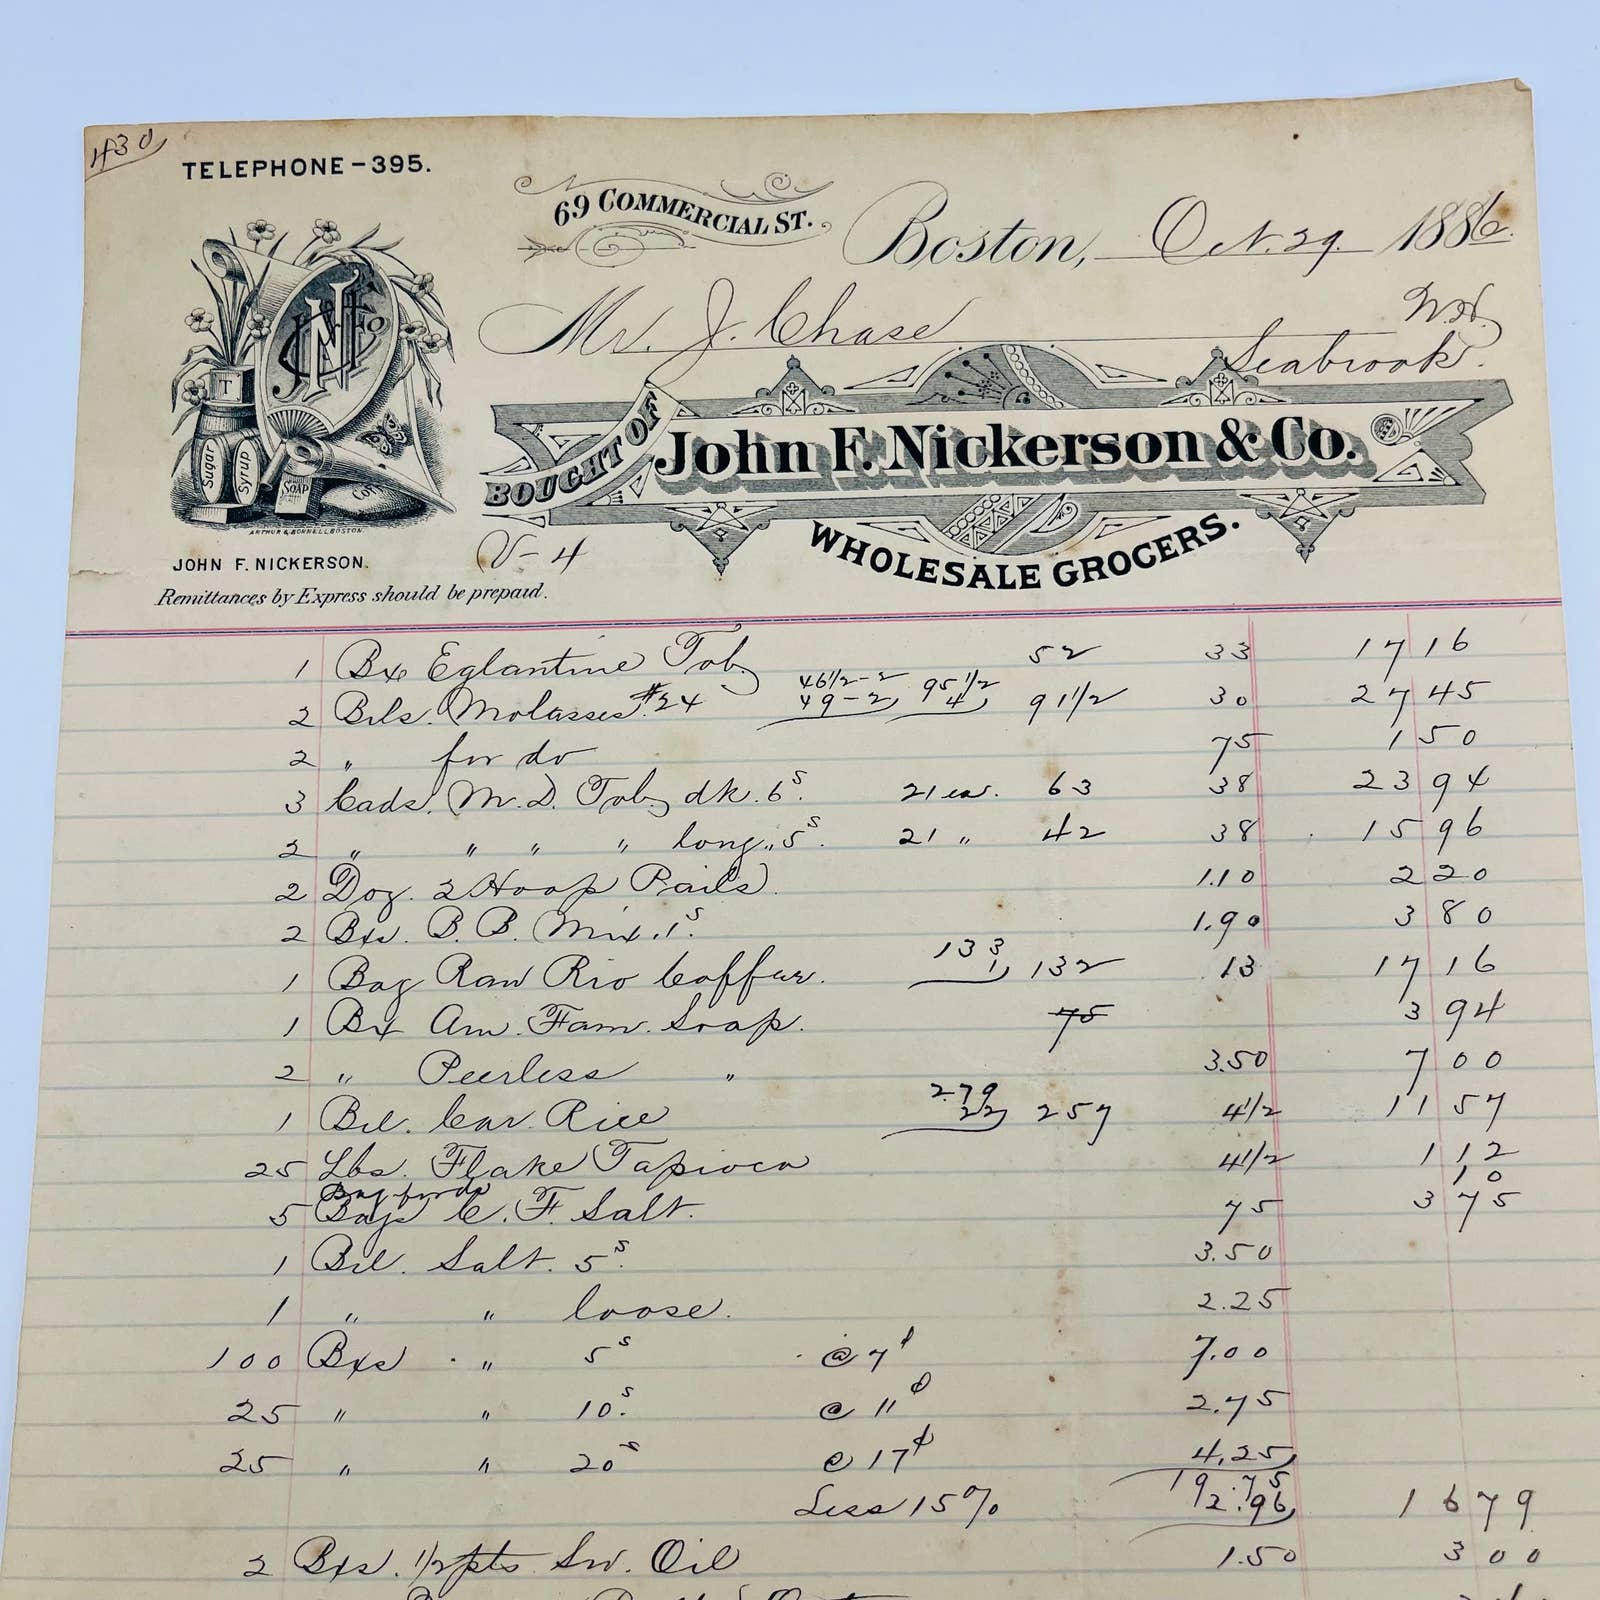 1430
TELEPHONE-395.
69 COMMERCIAL ST.
Boston, Oct. 29. 1886.
Mr. J. Chase
N.H.
Seabrook.
JNF & Co
T
Sugar
Syrup
SOAP
BOUGHT OF
John F. Nickerson & Co.
WHOLESALE GROCERS.
ARTHUR & BONNELL, BOSTON.
V-4
JOHN F. NICKERSON.
Remittances by Express should be prepaid.
1 Bx Eglantine Tob 52 33 17 16
2 Bls. Molasses #24 46 1/2-2 49-2 95 1/2 4 91 1/2 30 27 45
2 " for do 75 1 50
3 Cads. M. D. Tob dk. 6s. 21 ea. 63 38 23 94
2 " " " " long " 5s. 21 " 42 38 15 96
2 Doz. 2 Hoop Pails. 1.10 2 20
2 Bxs. B. B. Mix. 1s. 1.90 3 80
1 Bag Raw Rio Coffee. 133 1 132 13 17 16
1 Bx Am. Fam. Soap. 75 3 94
2 " Peerless " 3.50 7 00
1 Bbl. Car. Rice 279 22 257 4 1/2 11 57
25 Lbs. Flake Tapioca 4 1/2 1 12
Bag for do 10
5 Bags C. F. Salt. 75 3 75
1 Bbl. Salt. 5s. 3.50
1 " " loose. 2.25
100 Bxs " 5s @ 7¢ 7.00
25 " " 10s. @ 11¢ 2.75
25 " " 20s @ 17¢ 4.25
19.75
Less 15% 2.96 16 79
2 Bxs. 1/2 pts Sw. Oil 1.50 3 00